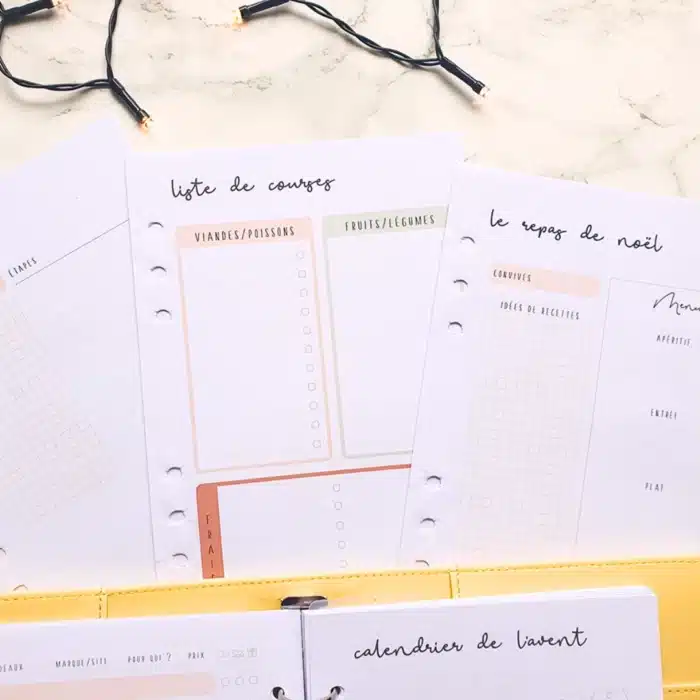 ÉTAPES
liste de courses
VIANDES/POISSONS
FRUITS/LÉGUMES
le repas de noël
CONVIVES
IDÉES DE RECETTES
Menu
APÉRITIF
ENTRÉE
PLAT
MARQUE/SITE POUR QUI ? PRIX
calendrier de l'avent